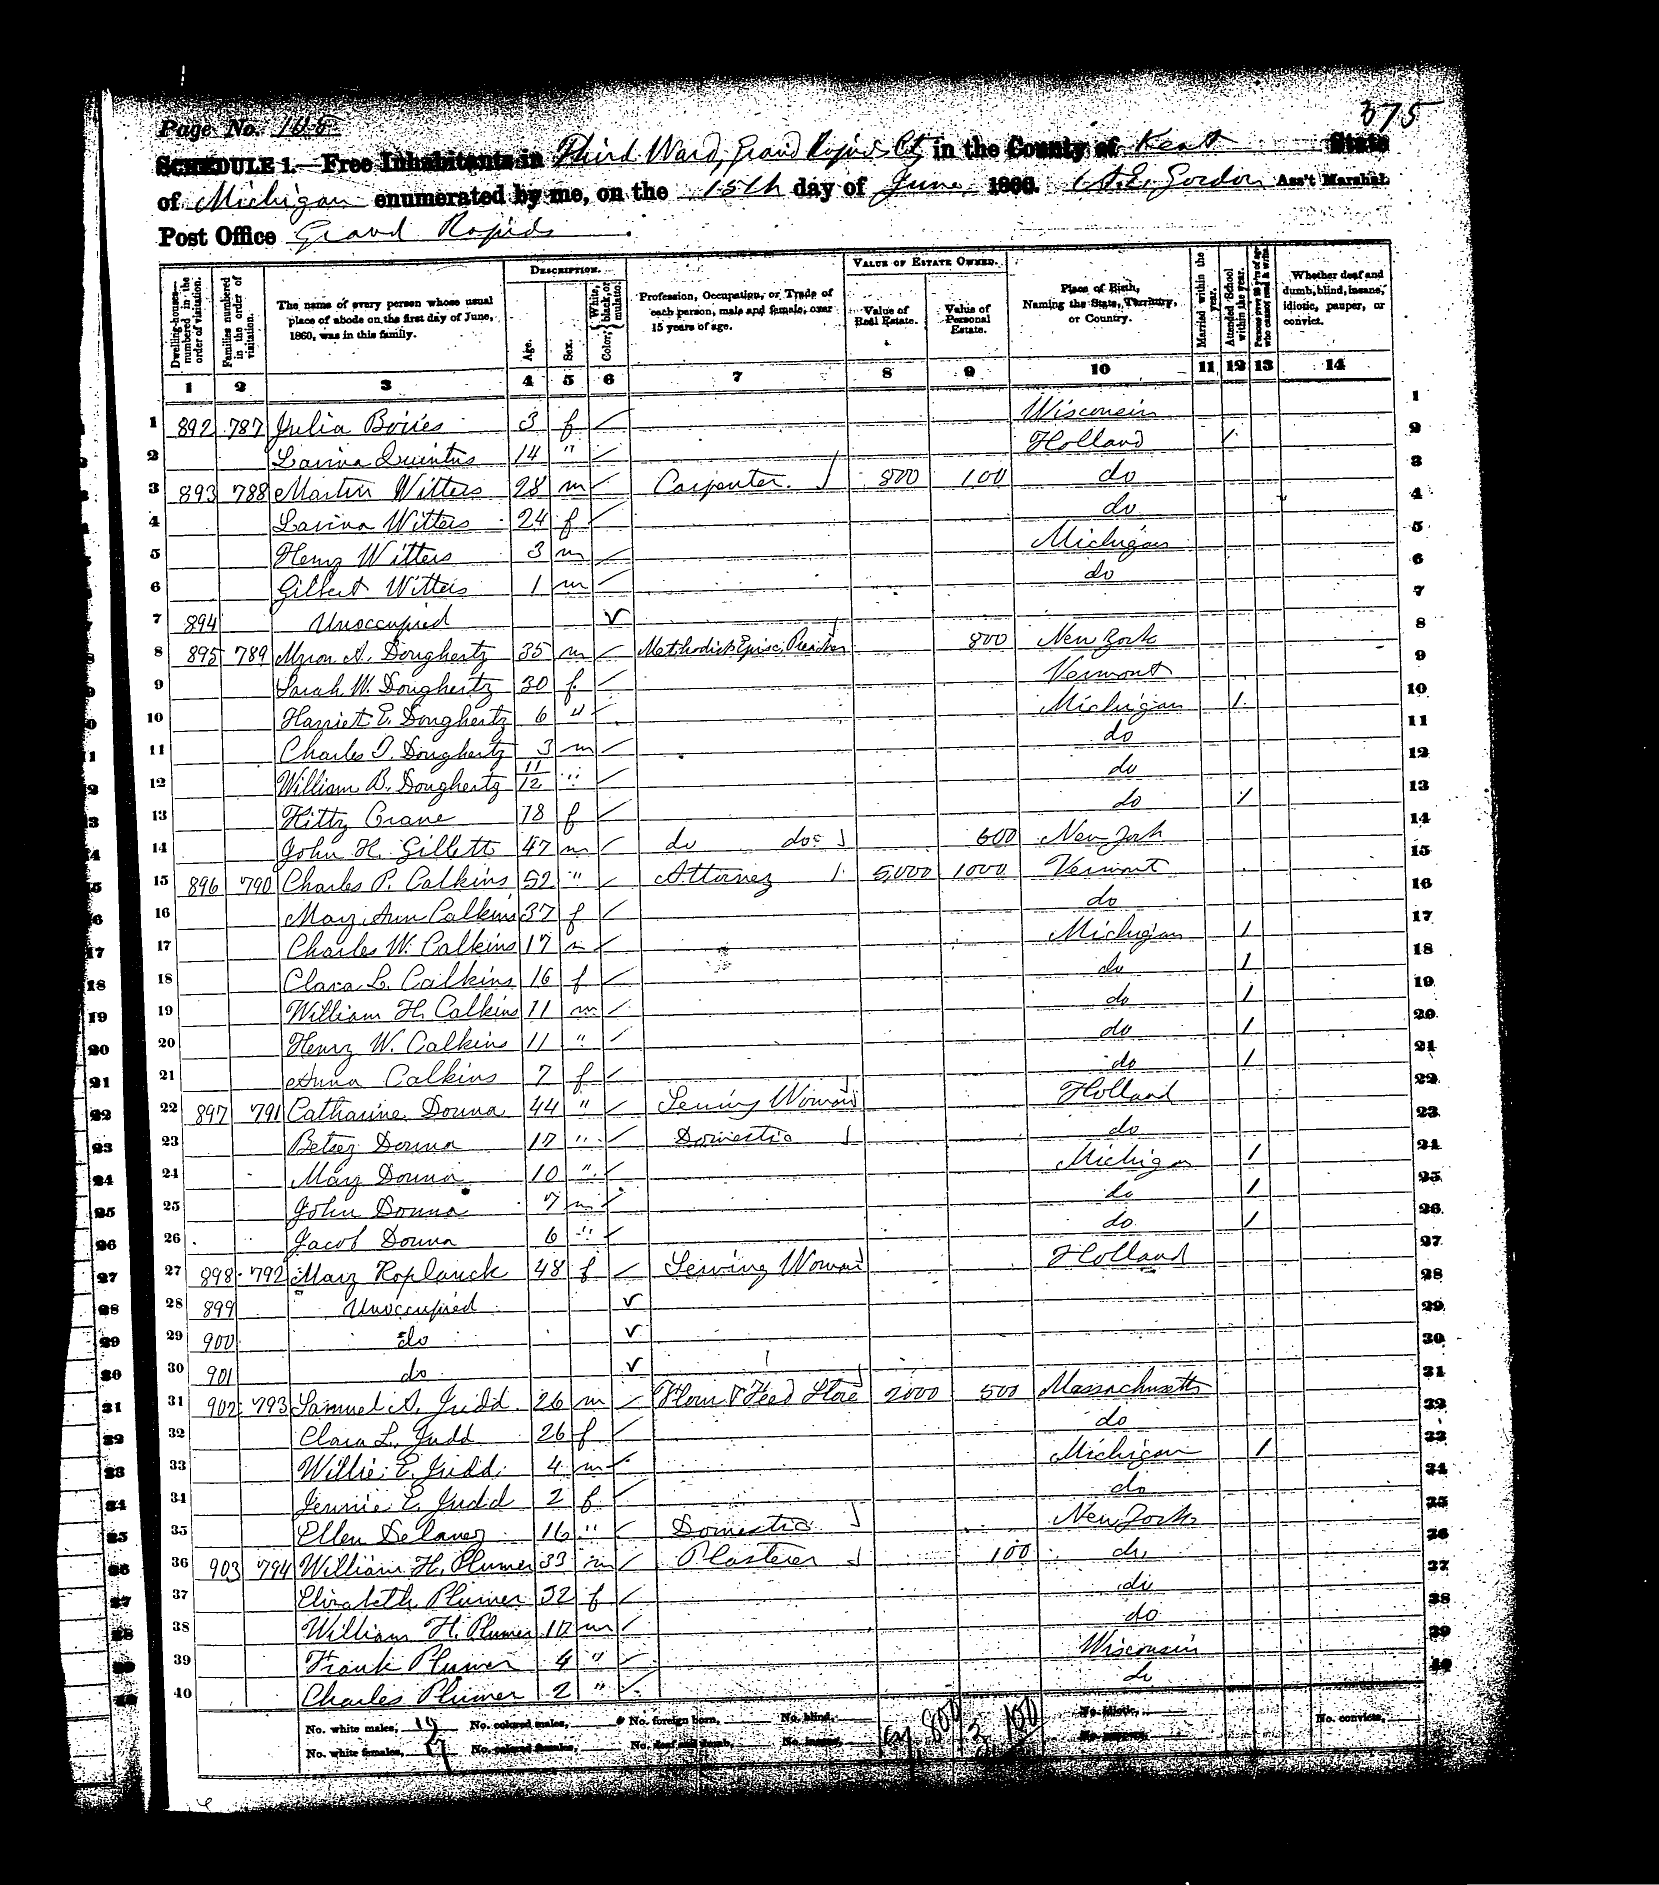 375
Page No. 105
SCHEDULE 1.—Free Inhabitants in Third Ward, Grand Rapids City in the County of Kent State
of Michigan enumerated by me, on the 15th day of June 1860. A.E. Gordon Ass't Marshal.
Post Office Grand Rapids
Dwelling-houses—numbered in the order of visitation. Families numbered in the order of visitation. The name of every person whose usual place of abode on the first day of June, 1860, was in this family. DESCRIPTION. Age. Sex. Color, White, black, or mulatto. Profession, Occupation, or Trade of each person, male and female, over 15 years of age. VALUE OF ESTATE OWNED. Value of Real Estate. Value of Personal Estate. Place of Birth, Naming the State, Territory, or Country. Married within the year. Attended School within the year. Persons over 20 y'rs of age who cannot read & write. Whether deaf and dumb, blind, insane, idiotic, pauper, or convict.
1 2 3 4 5 6 7 8 9 10 11 12 13 14
1 892 787 Julia Bories 3 f Wisconsin 1
2 Lavina Quintus 14 " Holland / 2
3 893 788 Martin Witters 28 m Carpenter. 800 100 do 3
4 Lavina Witters 24 f do 4
5 Henry Witters 3 m Michigan 5
6 Gilbert Witters 1 m do 6
7 894 Unoccupied 7
8 895 789 Myron A. Dougherty 35 m Methodist Episc. Preacher 800 New York 8
9 Sarah W. Dougherty 30 f Vermont 9
10 Harriet E. Dougherty 6 " Michigan 1 10
11 Charles T. Dougherty 3 m do 11
12 William B. Dougherty 11/12 " do 12
13 Hitty Crane 18 f do / 13
14 John H. Gillett 47 m do do 600 New York 14
15 896 790 Charles P. Calkins 52 " Attorney 5,000 1000 Vermont 15
16 Mary Ann Calkins 37 f do 16
17 Charles W. Calkins 17 m Michigan 1 17
18 Clara L. Calkins 16 f do 1 18
19 William H. Calkins 11 m do 1 19
20 Henry W. Calkins 11 " do 1 20
21 Anna Calkins 7 f do 1 21
22 897 791 Catharine Donna 44 " Sewing Woman Holland 22
23 Betsey Donna 17 " Domestic do 23
24 Mary Donna 10 " Michigan 1 24
25 John Donna 7 m do 1 25
26 Jacob Donna 6 " do 1 26
27 898 792 Mary Roplanck 48 f Sewing Woman Holland 27
28 899 Unoccupied 28
29 900 do 29
30 901 do 30
31 902 793 Samuel A. Judd 26 m Flour & Feed Store 2000 500 Massachusetts 31
32 Clara L. Judd 26 f do 32
33 Willie E. Judd 4 m Michigan 1 33
34 Jennie E. Judd 2 f do 34
35 Ellen Delaney 16 " Domestic New York 35
36 903 794 William H. Plumer 33 m Plasterer 100 do 36
37 Elizabeth Plumer 32 f do 37
38 William H. Plumer 10 m do 38
39 Frank Plumer 4 " Wisconsin 39
40 Charles Plumer 2 " do 40
No. white males, 19 No. colored males, No. foreign born, No. blind, No. idiotic, No. convicts,
No. white females, No. colored females, No. deaf and dumb, No. insane,